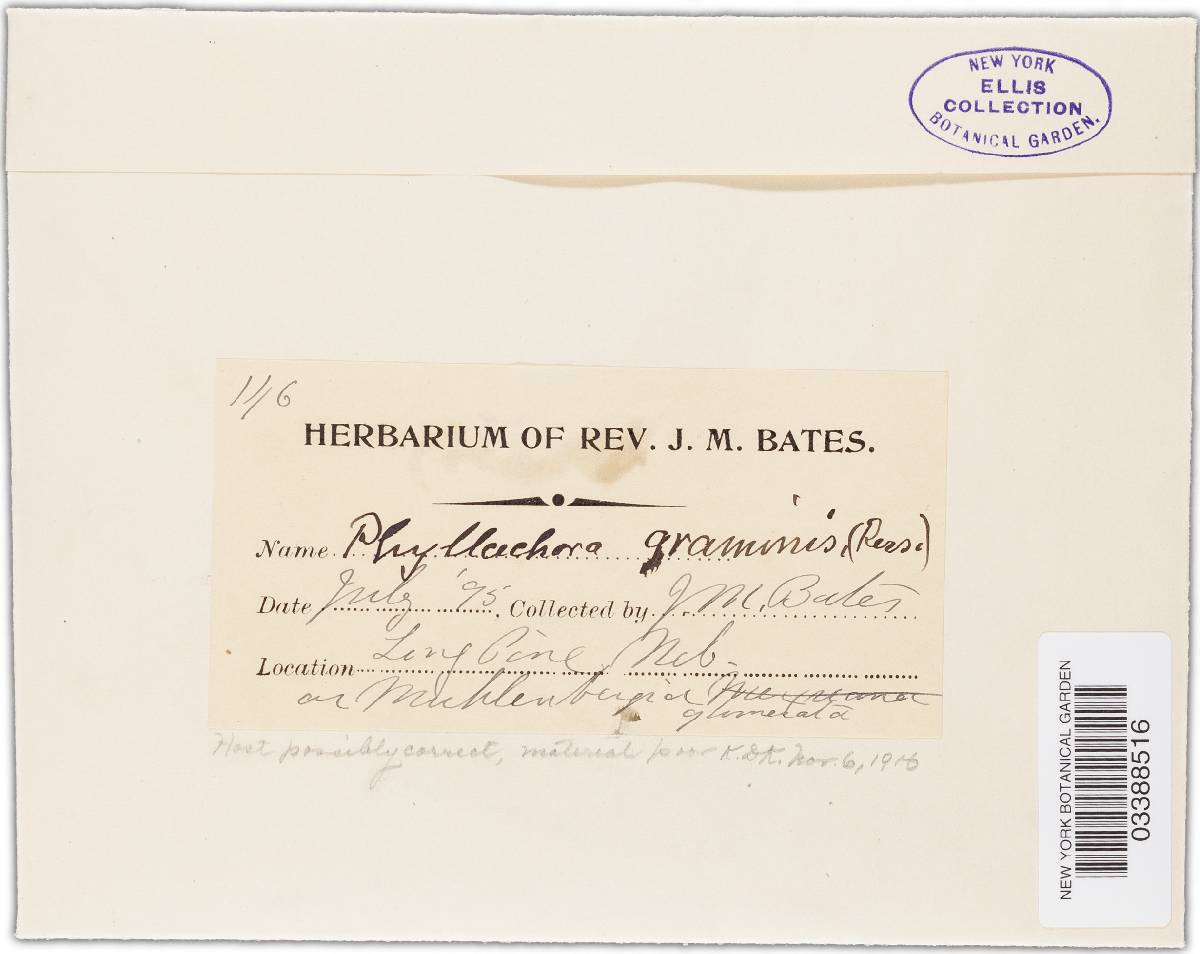 NEW YORK
ELLIS
COLLECTION
BOTANICAL GARDEN.
116
HERBARIUM OF REV. J. M. BATES.
Name Phyllachora graminis, (Pers.)
Date July '95, Collected by J. M. Bates
Location Long Pine, Neb.
on Muhlenbergia Mexicana
glomerata
Host possibly correct, material poor K.D.K. Nov. 6, 1916
NEW YORK BOTANICAL GARDEN
03388516